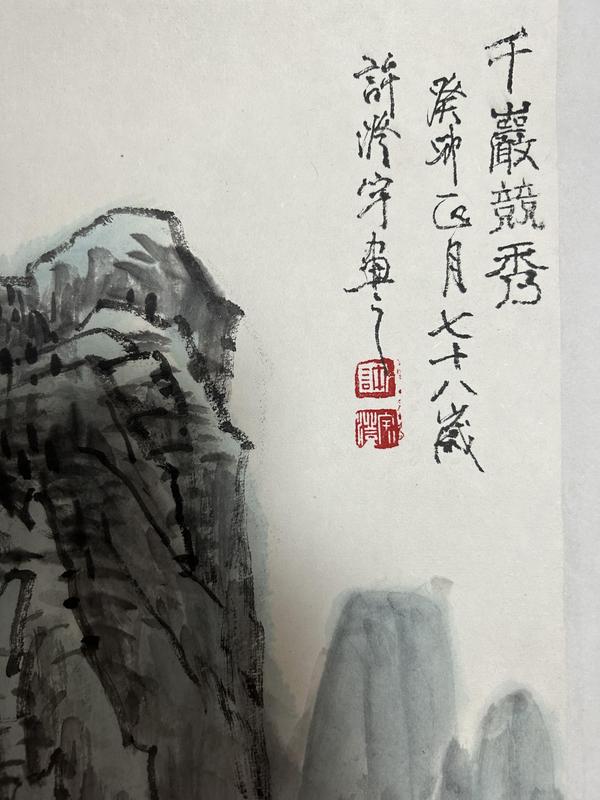 千巖競秀
癸卯四月七十八歲
許澄宇畫之
許